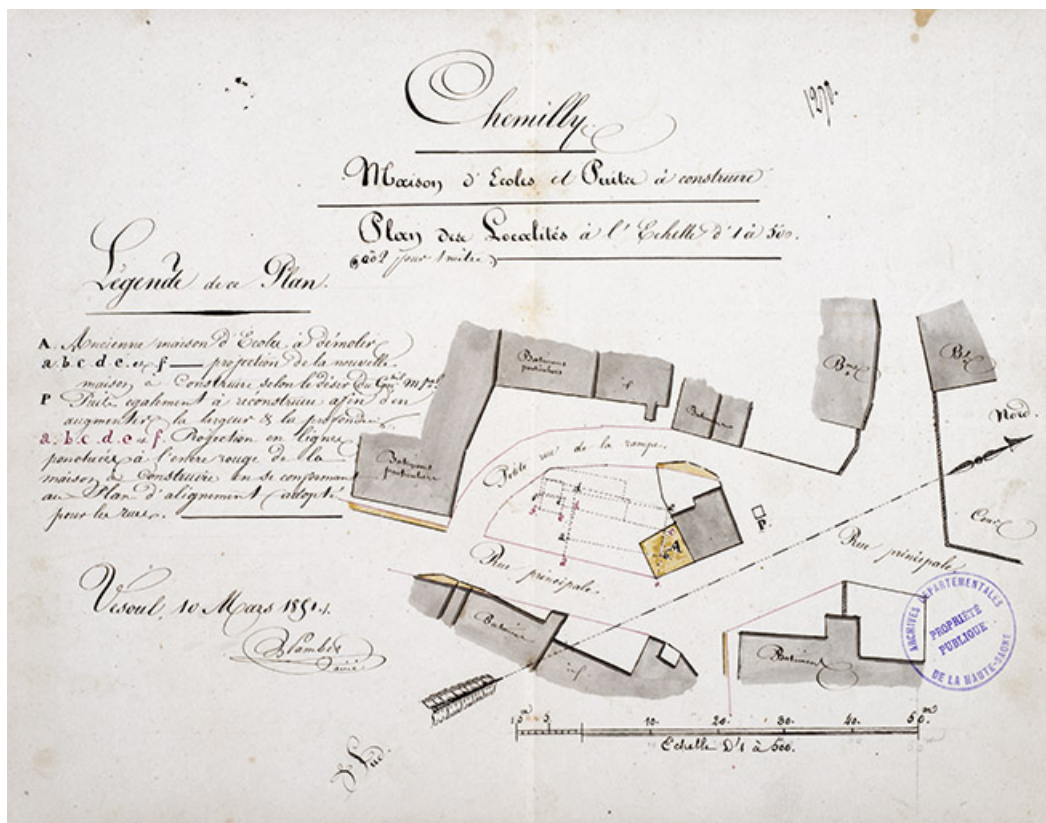 Chemilly.
1270.
Maison d'Ecoles et Puits à construire
Plan des Localités à l'Echelle d'1 à 500.
pour 1 mètre
Légende de ce Plan.
A. Ancienne maison d'Ecole à démolir
a.b.c.d.e et f — projection de la nouvelle
maison à construire selon le désir du
P Puits également à reconstruire afin d'en
augmenter la largeur & la profondeur.
a.b.c.d.e et f. Projection en lignes
ponctuées à l'encre rouge de la
maison à construire en se conformant
au Plan d'alignement adopté
pour les rues.
Vesoul, 10 Mars 1851.
Batimens
particuliers
id
Batimens
Nord.
Batimens
particuliers
Petite rue de la rampe.
P.
Cour
Rue principale.
Rue principale.
Batimens
id
Batiment
ARCHIVES DÉPARTEMENTALES
PROPRIÉTÉ
PUBLIQUE
DE LA HAUTE-SAONE
Sud.
10. 20. 30. 40. 50.
Echelle D'1 à 500.